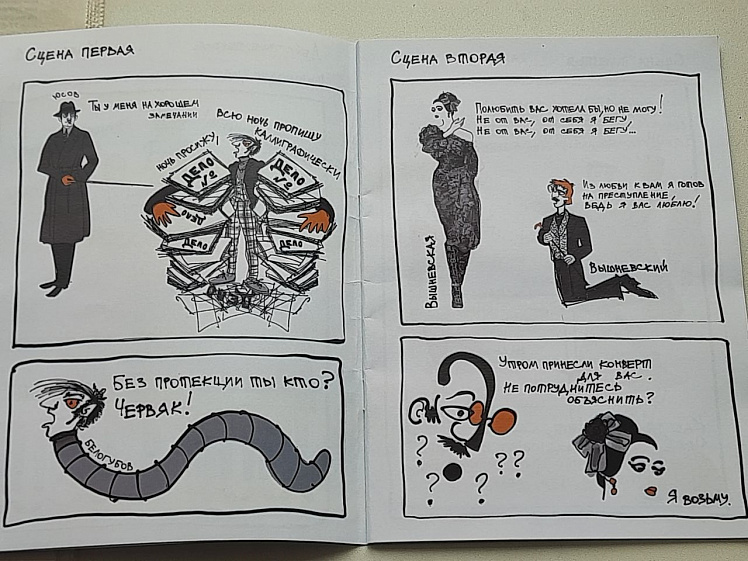 Сцена первая
Юсов
Ты у меня на хорошем
замечании
Ночь просижу,
всю ночь пропишу
каллиграфически
Дело
№
Дело
№
Дело
Дело
Дело
Дело
Без протекции ты кто?
Червяк!
Белогубов
Сцена вторая
Полюбить вас хотела бы, но не могу!
Не от вас, от себя я бегу
Не от вас, от себя я бегу...
Вышневская
Из любви к вам я готов
на преступление,
ведь я вас люблю!
Вышневский
Утром принесли конверт
для вас.
Не потрудитесь
объяснить?
? ? ? ? ? ?
Я возьму.